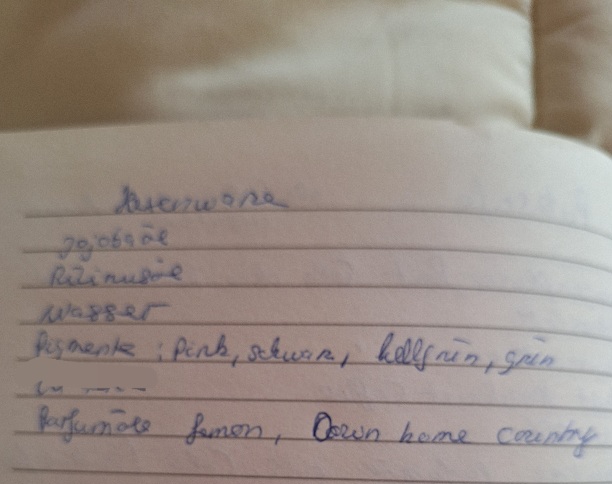 Jojobaöl
Rizinusöl
Wasser
Pigmente : pink, schwarz, hellgrün, grün
Parfümöle Lemon, Down home country